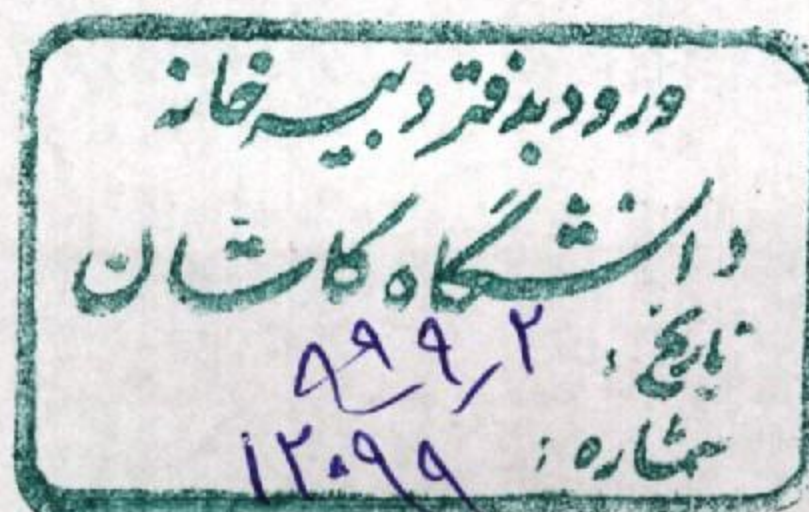 ورود بدفتر دبیرخانه
دانشگاه کاشان
تاریخ :
شماره : ۱۲۰۹۹